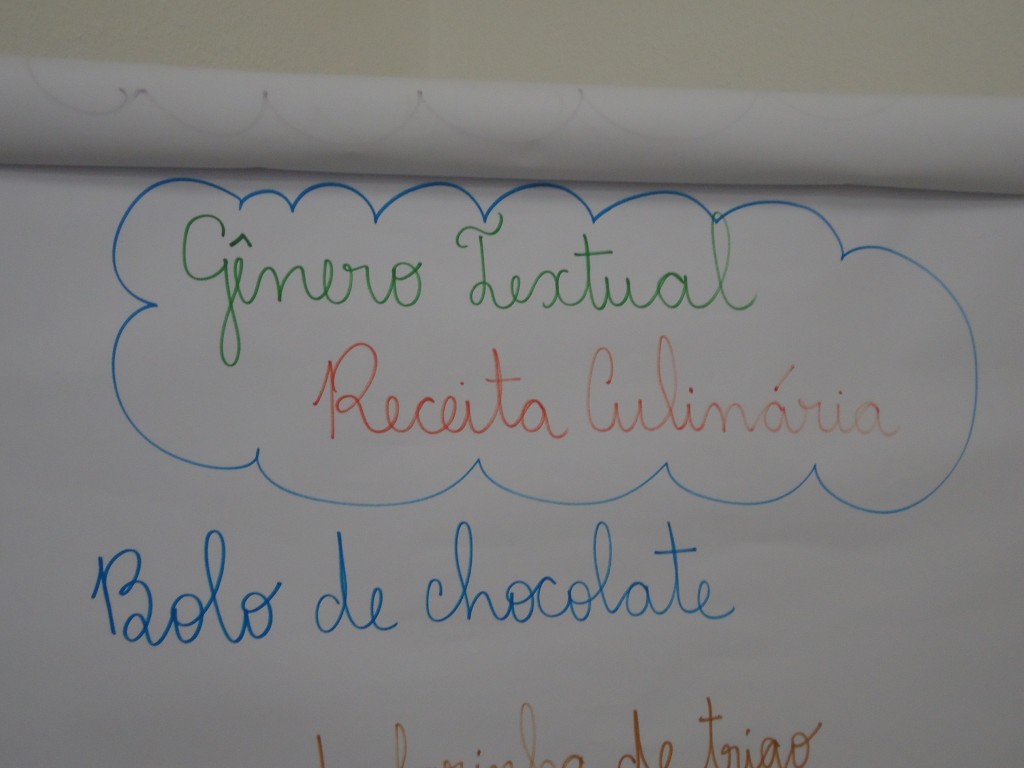 Gênero Textual
Receita Culinária
Bolo de chocolate
de farinha de trigo